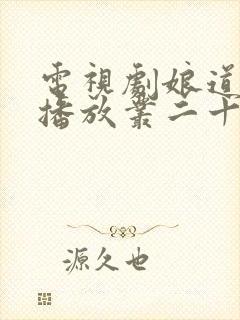 電視劇娘道
播放業二十
源久也